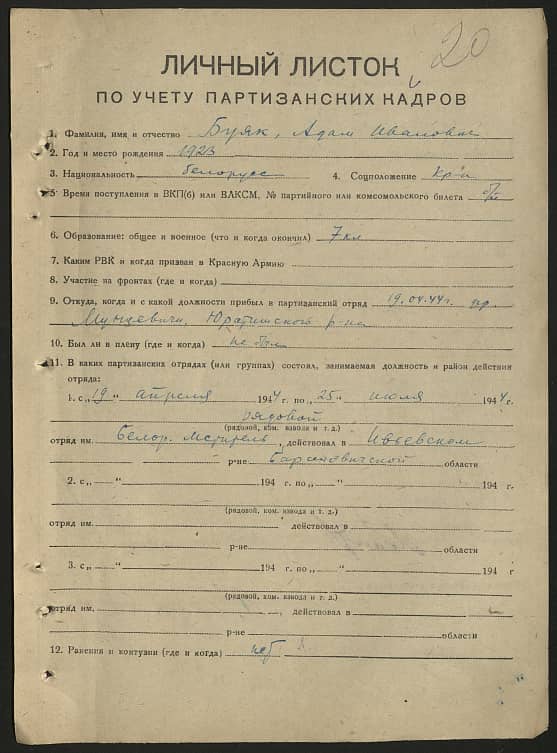 20
ЛИЧНЫЙ ЛИСТОК
ПО УЧЕТУ ПАРТИЗАНСКИХ КАДРОВ
1. Фамилия, имя и отчество Буяк, Адам Иванович
2. Год и место рождения 1923
3. Национальность белорус 4. Соцположение кр-н
5 Время поступления в ВКП(б) или ВЛКСМ, № партийного или комсомольского билета б/п
6. Образование: общее и военное (что и когда окончил) 7 кл
7. Каким РВК и когда призван в Красную Армию
8. Участие на фронтах (где и когда)
9. Откуда, когда и с какой должности прибыл в партизанский отряд 19.04.44г. др.
Юратишского р-на
10. Был ли в плену (где и когда) не был
11. В каких партизанских отрядах (или группах) состоял, занимаемая должность и район действия
отряда:
1. с „19" апреля 1944 г. по „25" июля 1944 г.
рядовой
(рядовой, ком. взвода и т. д.)
отряд им. Белор. Мститель, действовал в Ивьевском
р-не Барановичской области
2. с „ " 194 г. по „ " 194 г.
(рядовой, ком. взвода и т. д.)
отряд им. действовал в
р-не области
3. с „ " 194 г. по „ " 194 г
(рядовой, ком. взвода и т. д.)
отряд им. , действовал в
р-не области
12. Ранения и контузии (где и когда) нет